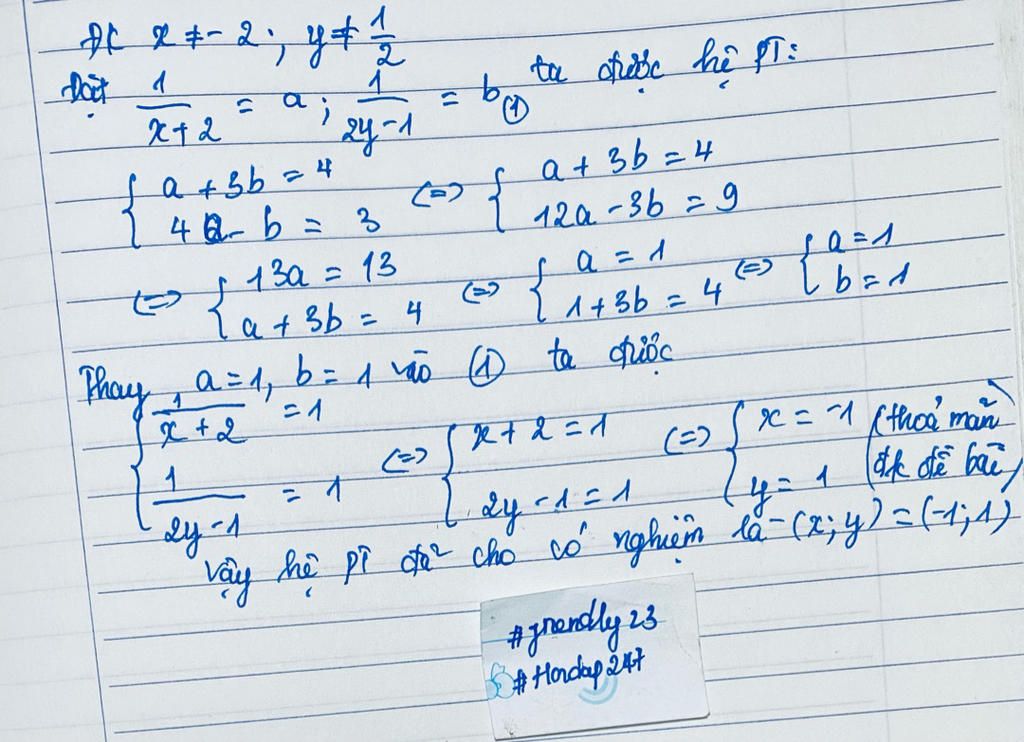 ĐK x ≠ -2 ; y ≠ 1/2
Đặt 1/(x+2) = a ; 1/(2y-1) = b (1) ta được hệ PT:
{ a + 3b = 4 ; 4a - b = 3 (=) { a + 3b = 4 ; 12a - 3b = 9
(=) { 13a = 13 ; a + 3b = 4 (=) { a = 1 ; 1 + 3b = 4 (=) { a = 1 ; b = 1
Thay a = 1, b = 1 vào (1) ta được
{ 1/(x+2) = 1 ; 1/(2y-1) = 1 (=) { x + 2 = 1 ; 2y - 1 = 1 (=) { x = -1 ; y = 1 (thoả mãn đk đề bài)
Vậy hệ PT đã cho có nghiệm là (x; y) = (-1; 1)
23
247